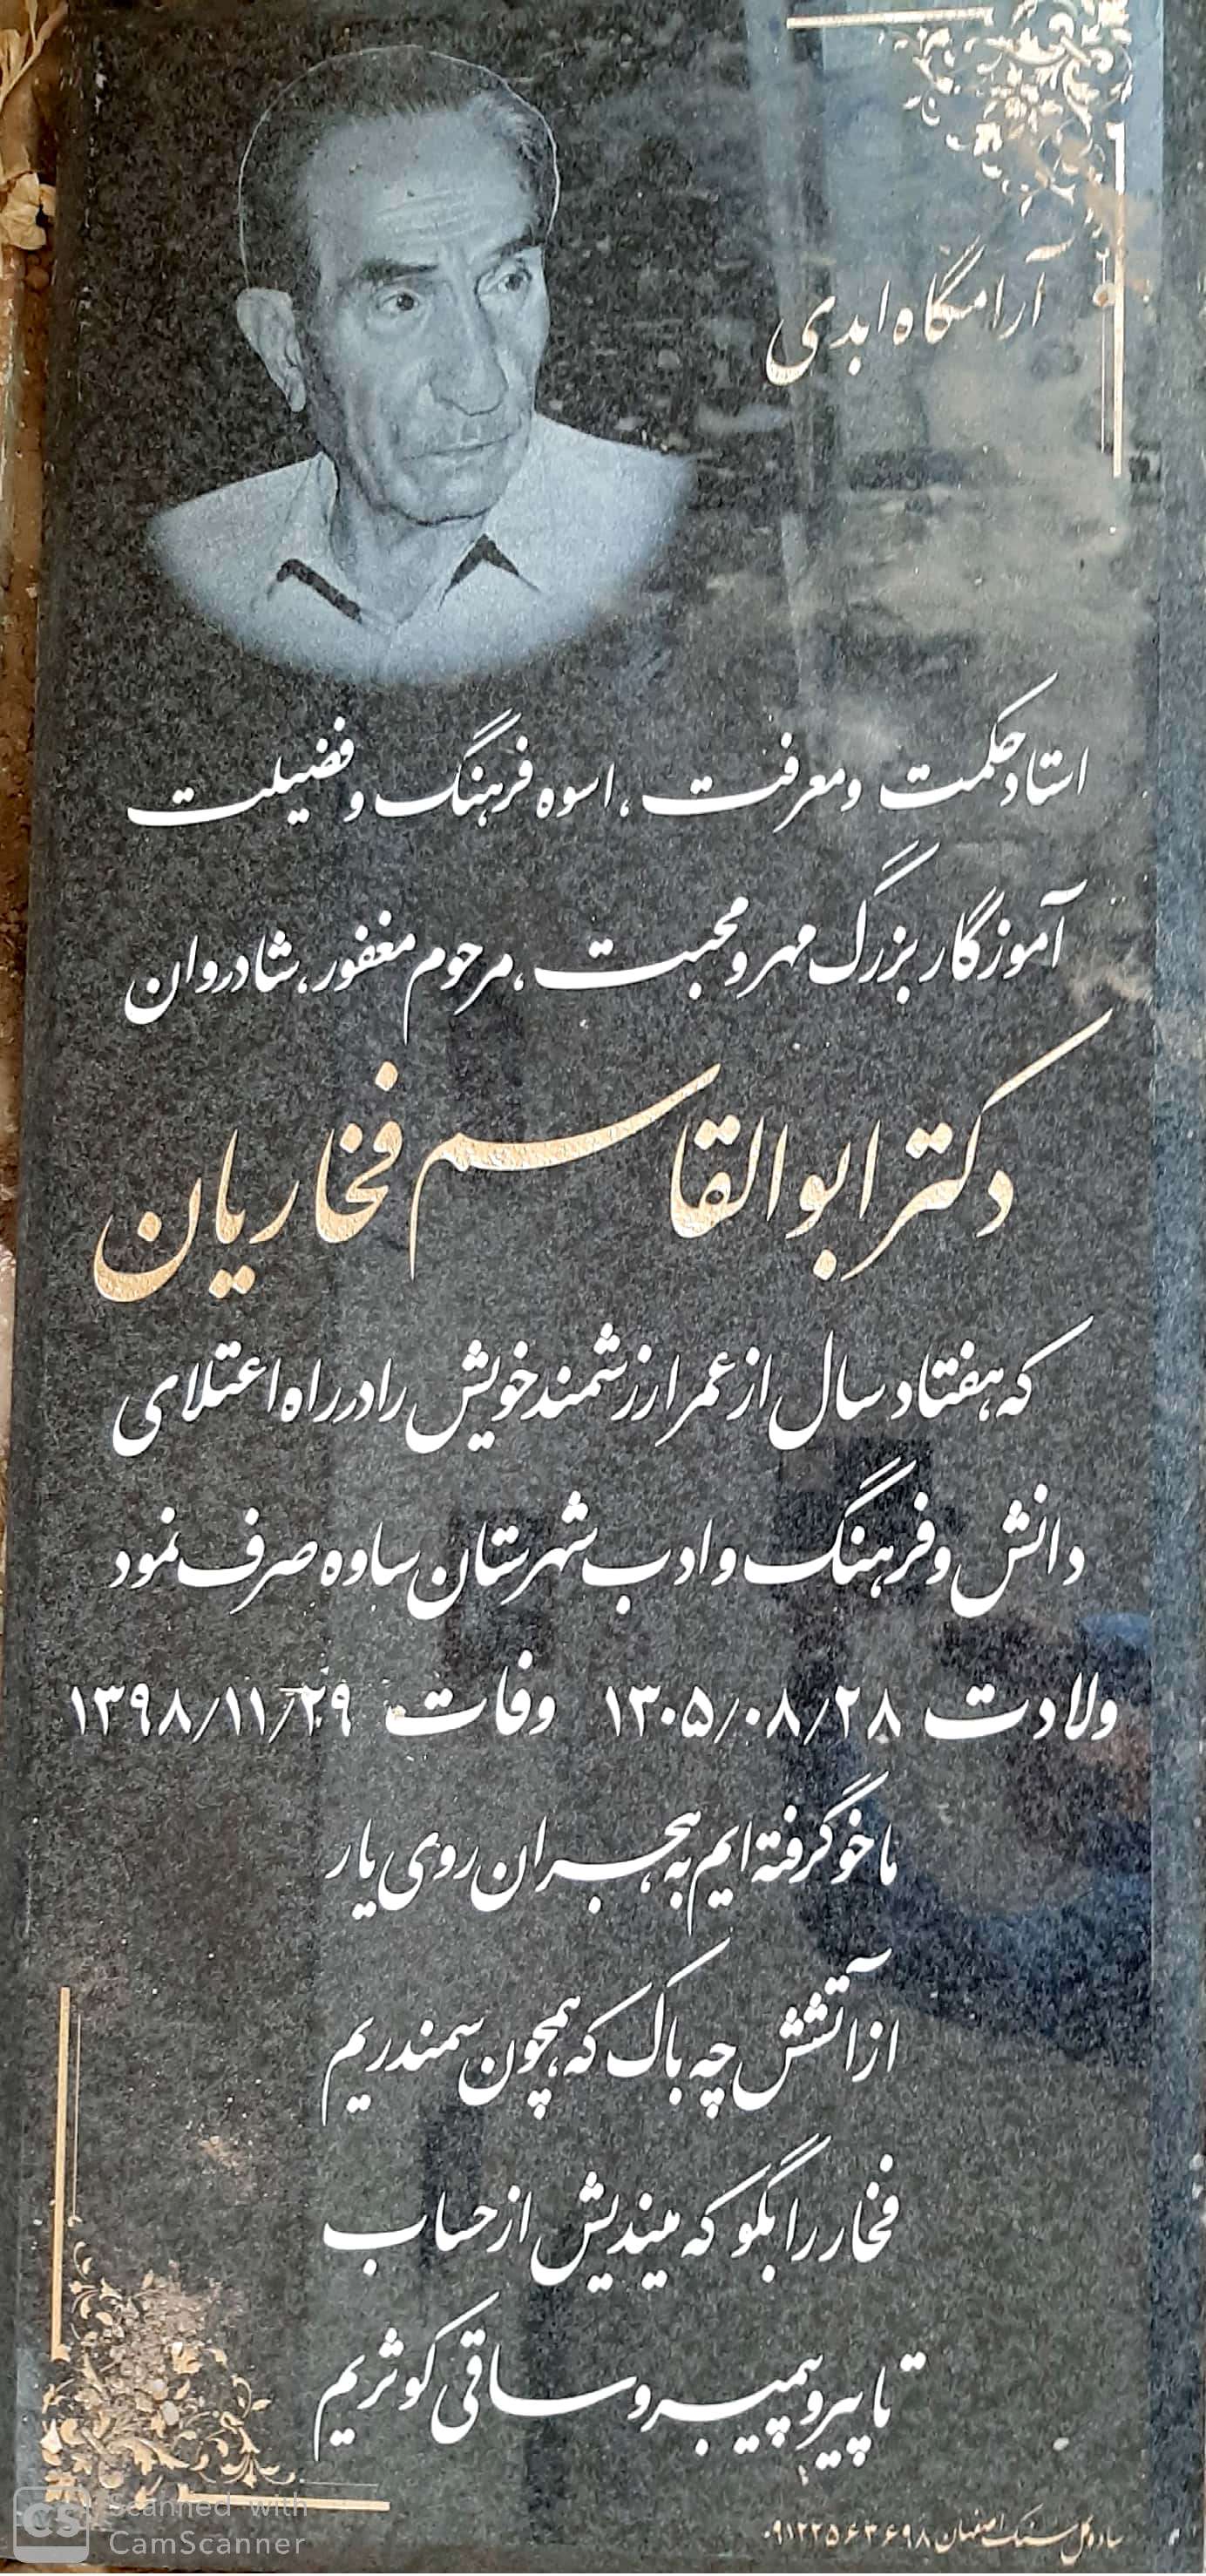 آرامگاه ابدی
استاد حکمت و معرفت ، اسوه فرهنگ و فضیلت
آموزگار بزرگ مهر و محبت ، مرحوم مغفور ، شادروان
دکتر ابوالقاسم فخاریان
که هفتاد سال از عمر ارزشمند خویش را در راه اعتلای
دانش و فرهنگ و ادب شهرستان ساوه صرف نمود
ولادت ۱۳۰۵/۰۸/۲۸ وفات ۱۳۹۸/۱۱/۲۹
ما خو گرفته ایم به هجران روی یار
از آتشش چه باک که همچون سمندریم
فخار را بگو که میندیش از حساب
تا پیرو پیمبر و ساقی کوثریم
ساوه گل سنگ اصفهان ۰۹۱۲۲۵۶۳۶۹۸
CS Scanned with
CamScanner